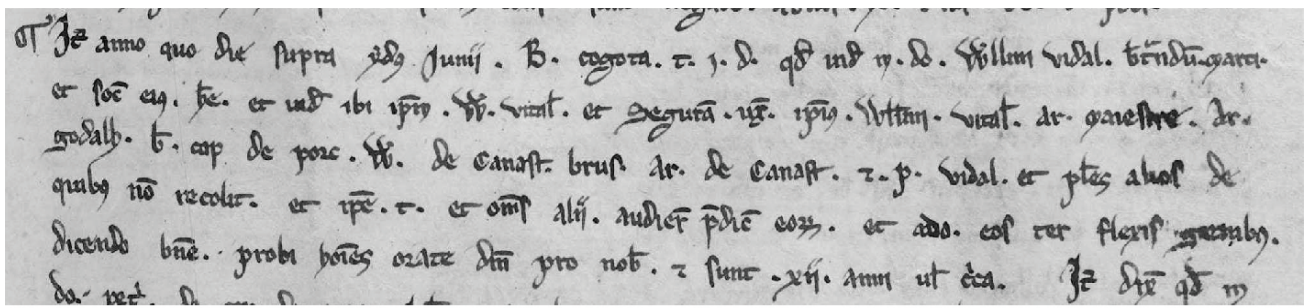 ¶ It̃ anno quo die supra ydꝰ Junii . B . cogota . t . j . d . qd̃ uid̃ in . do . Wll̃m vidal . b̃tñdũ . marti .
et soc̃ eiꝰ . h̃e . et uid̃ ibi ip̃m . W . vital̃ . et Segurã . ux̃ . ip̃iꝰ . Wll̃mi . vital̃ . ar . maiestre . Ar .
godalh . b̃ . cap de porc . W . de Canast̃ . brus . Ar . de Canast̃ . ⁊ . p . vidal . et pl̃es alios de
quibꝰ nõ recolit . et ip̃e . t . et om̃s alii . audier̃ p̃dic̃ eoꝝ . et ado . eos ter flexis genibꝰ .
dicendo bñe . probi hoĩes orate dñm pro nob̃ . ⁊ sunt . xii . anni ul̃ c̃ca . It̃ dix̃ qd̃ in